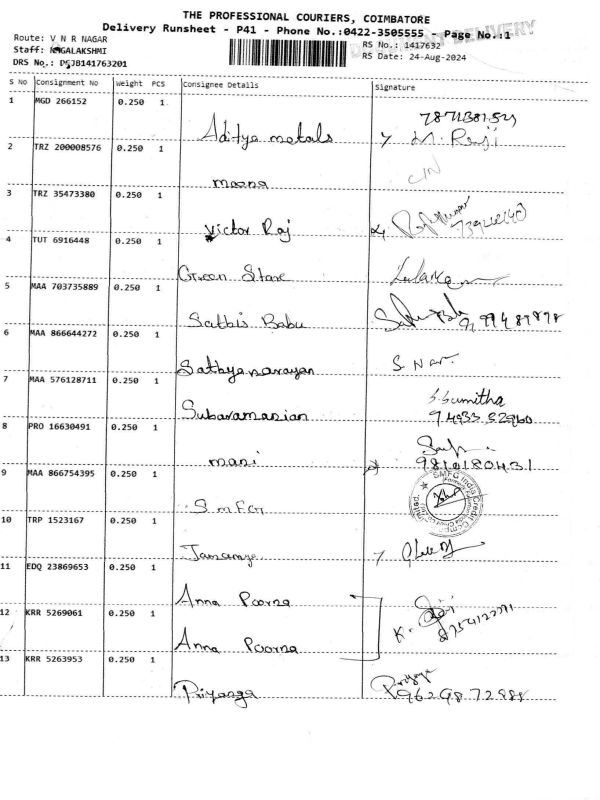 THE PROFESSIONAL COURIERS, COIMBATORE
Delivery Runsheet - P41 - Phone No.:0422-3505555 - Page No.:1
DELIVERY
Route: V N R NAGAR
Staff: NAGALAKSHMI
RS No.: 1417632
DRS No.: PSJB141763201
RS Date: 24-Aug-2024
S No Consignment No Weight PCS Consignee Details Signature
1 MGD 266152 0.250 1 Aditya metals M. Raji
2 TRZ 200008576 0.250 1 meena
3 TRZ 35473380 0.250 1 Victor Raj
4 TUT 6916448 0.250 1 Green Stare
5 MAA 703735889 0.250 1 Sathis Babu
6 MAA 866644272 0.250 1 Sathyanarayan S Nar.
7 MAA 576128711 0.250 1 Subaramanian S. Sumitha
94933 52960
8 PRO 16630491 0.250 1 mani
9810180431
9 MAA 866754395 0.250 1 SMFG SMFG India Credit Company Limited
10 TRP 1523167 0.250 1
11 EDQ 23869653 0.250 1 Anna Poorna
12 KRR 5269061 0.250 1 Anna Poorna K.
13 KRR 5263953 0.250 1 Priyanga Priyanga
9629872988